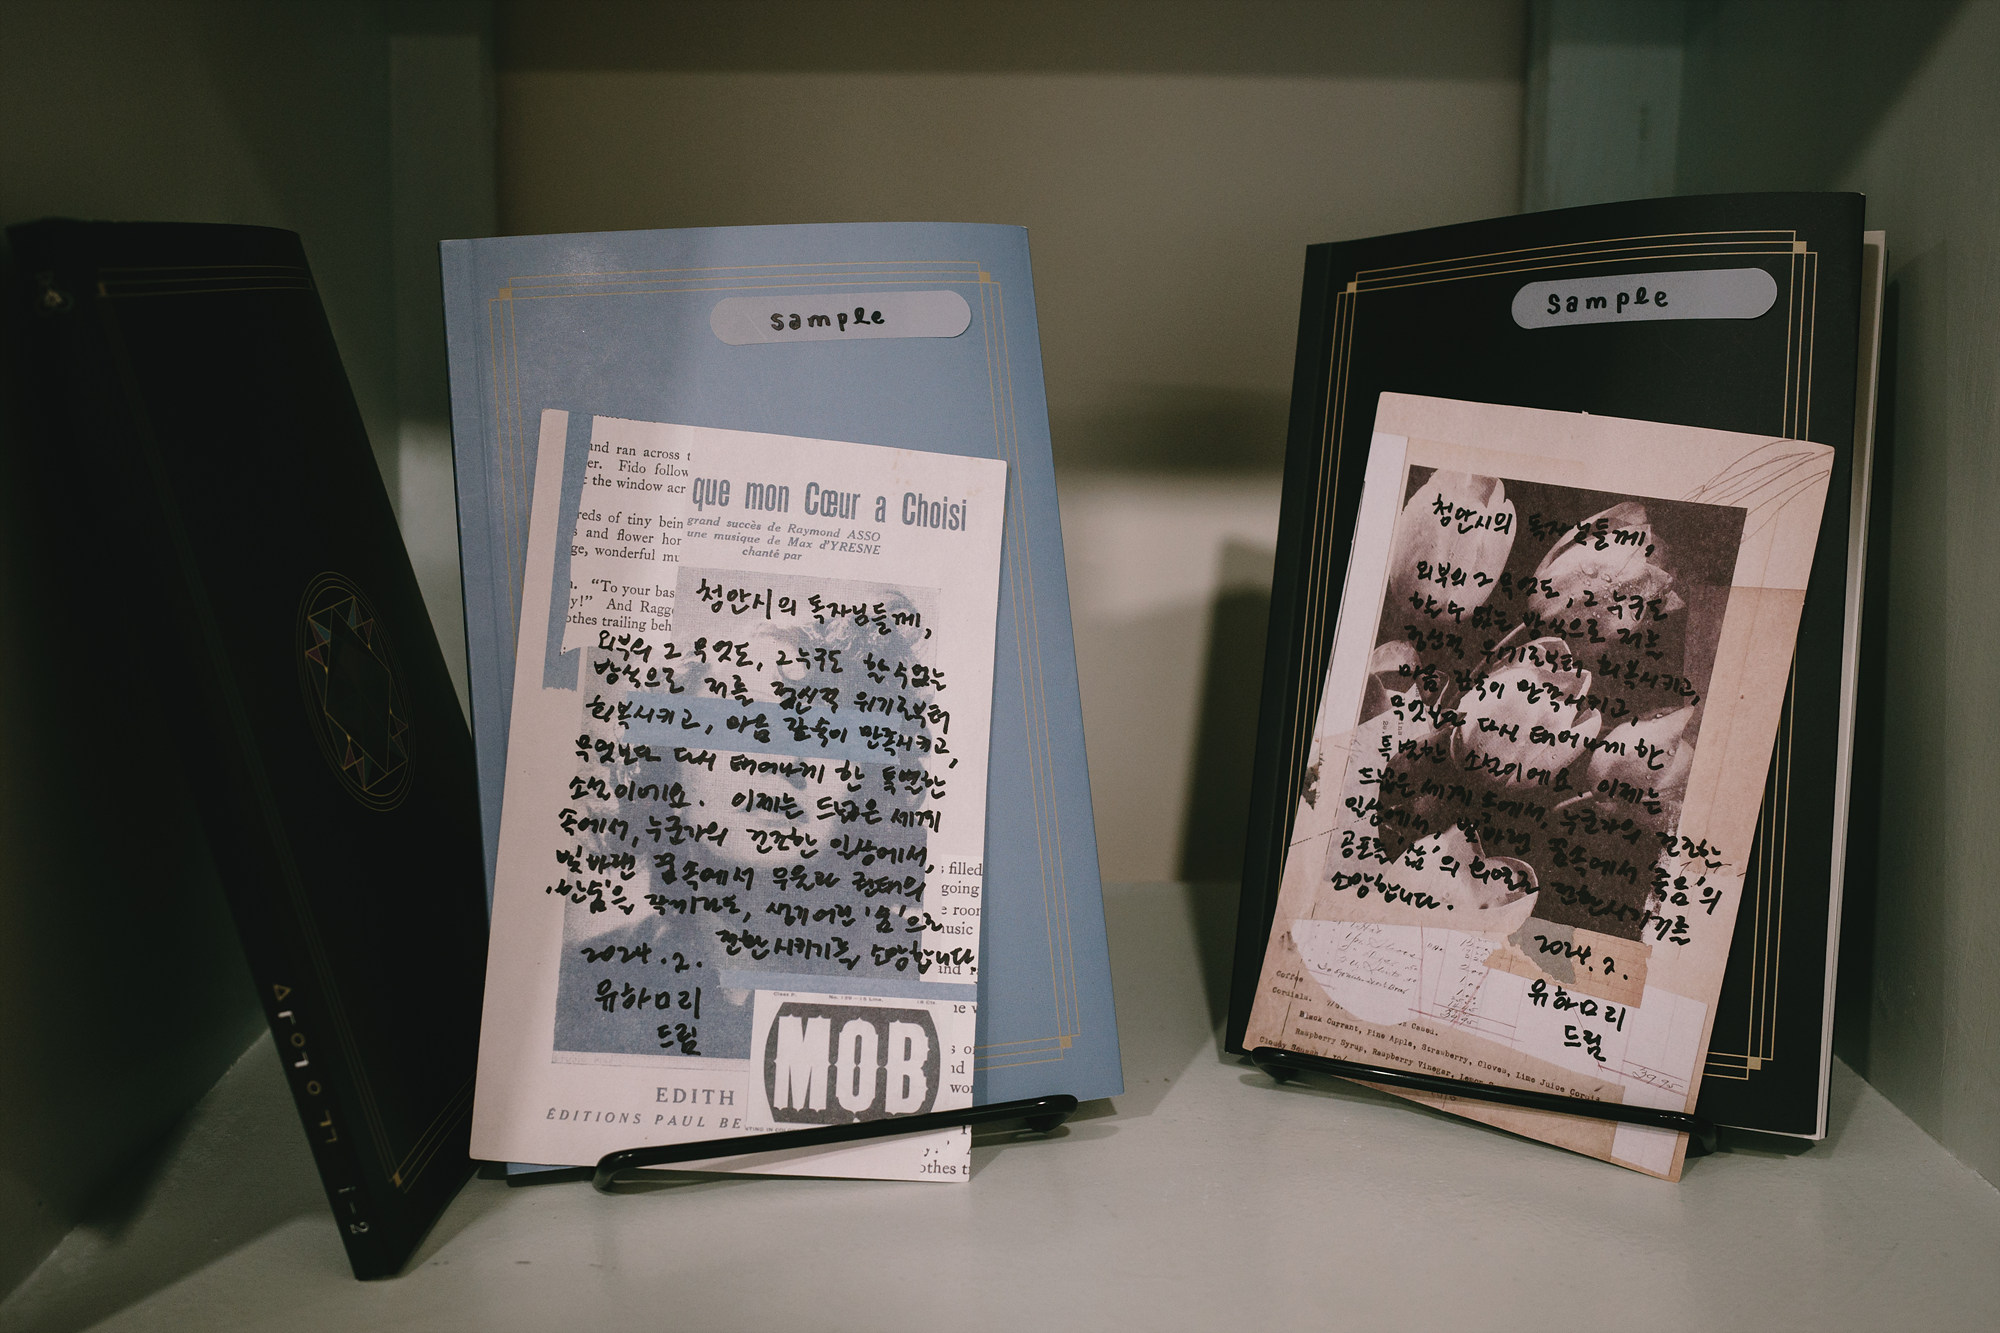 sample
and ran across t
er. Fido follow
t the window acr
reds of tiny bein
s and flower hor
ge, wonderful mu
n. "To your bas
y!" And Ragge
othes trailing beh
que mon Cœur a Choisi
grand succès de Raymond ASSO
une musique de Max d'YRESNE
chanté par
청안시의 독자님들께,
외부의 그 무엇도, 그 누구도 할 수 없는
방식으로 저를 정신적 위기로부터
회복시키고, 마음 깊숙이 만족시키고,
무엇보다 다시 태어나게 한 특별한
소설이에요. 이제는 드넓은 세계
속에서, 누군가의 건조한 일상에서,
빛바랜 꿈속에서 우울과 권태의
작게나마, 생기어린 '숨'으로
전환시키기를 소망합니다.
2024. 2.
유하마리
드림
s filled
going
e room
music
and r
he w
s of
nd
wor
EDITH
ÉDITIONS PAUL BE
MOB
othes t
sample
청안시의 독자님들께,
외부의 그 무엇도, 그 누구도
할 수 없는 방식으로 저를
정신적 위기로부터 회복시키고,
마음 깊숙이 만족시키고,
무엇보다 다시 태어나게 한
특별한 소설이에요. 이제는
드넓은 세계 속에서, 누군가의 건조한
일상에서, 빛바랜 꿈속에서 '죽음'의
공포를 '삶'의 희열로 전환시키기를
소망합니다.
2024. 2.
유하마리
드림
Coffee
Cordials.
Black Currant, Pine Apple, Strawberry, Cloves, Lime Juice Cordia
Raspberry Syrup, Raspberry Vinegar, Lemon
39.95
i-2